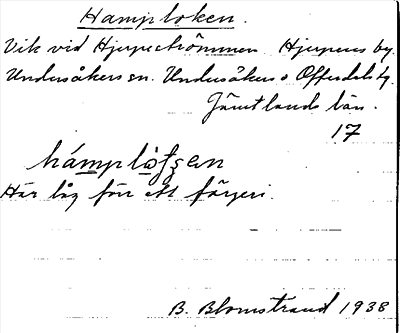 Hamploken.
Vik vid Hjerpeströmmen Hjerpens by.
Undersåkers sn. Undersåkers o Offerdals tg.
Jämtlands län.
17
hámplò̀fsen
Här låg för ett färjeri.
B. Blomstrand 1938